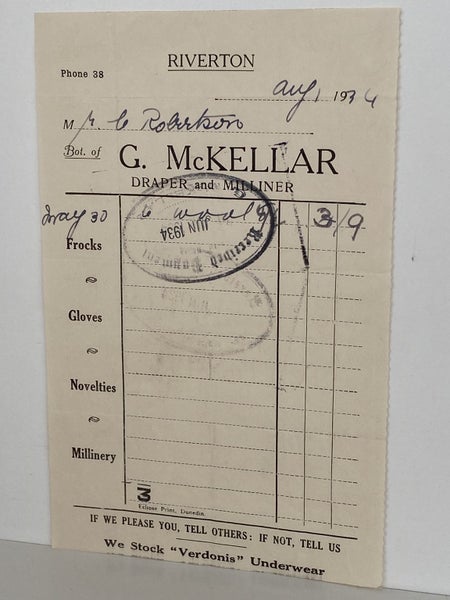 RIVERTON
Phone 38
Aug 1 1934
Mr. C Robertson
Bot. of G. McKELLAR
DRAPER and MILLINER
May 30 To wool 3/9
Received Payment
JUN 1934
Frocks
Gloves
Novelties
Millinery
3
Eclipse Print, Dunedin.
IF WE PLEASE YOU, TELL OTHERS: IF NOT, TELL US
We Stock "Verdonis" Underwear